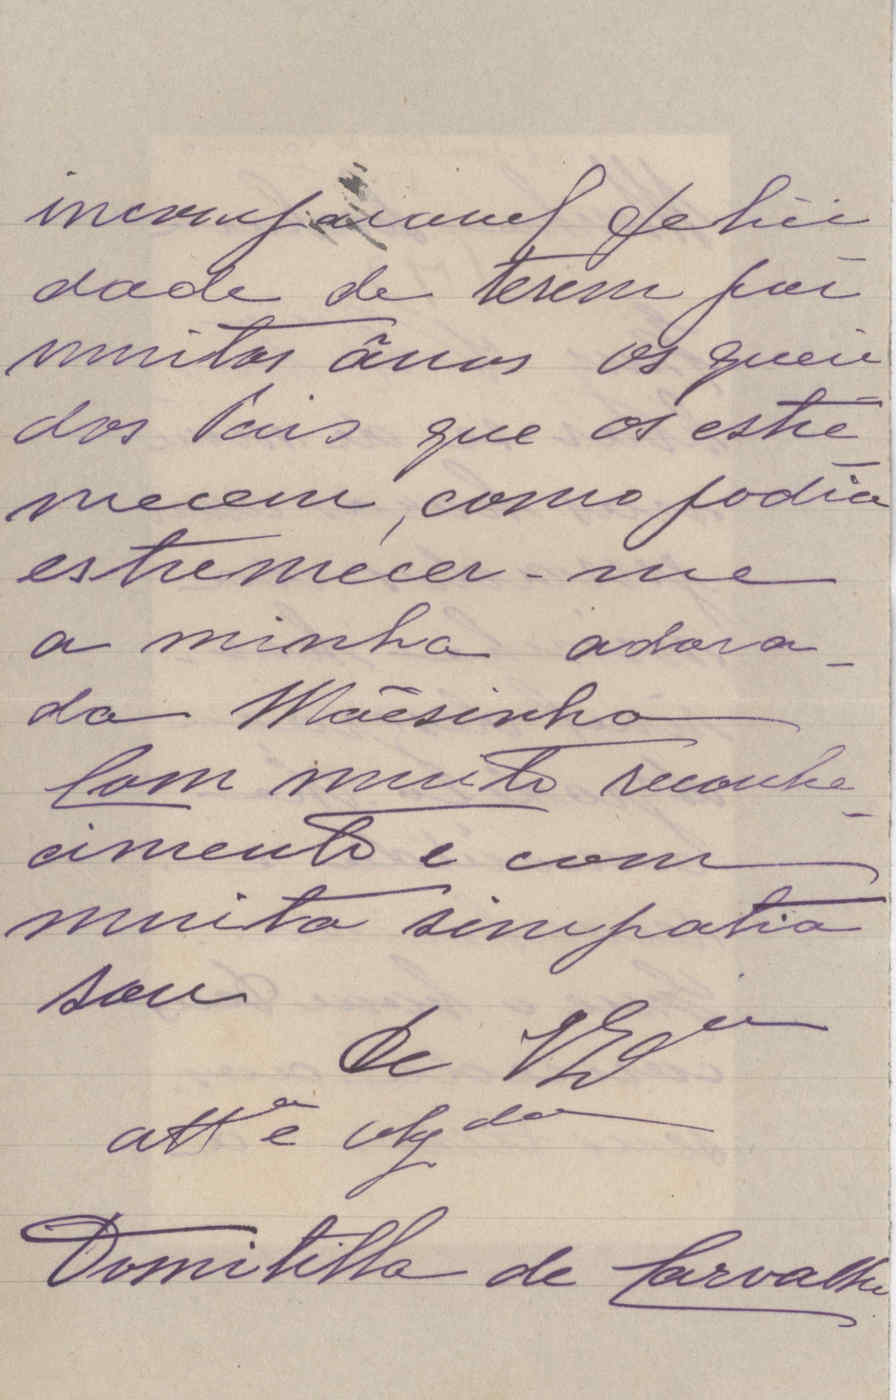 incomparavel felici
dade de terem por
muitos ânos os queri
dos Pais que os estre
mecem, como podia
estremecer-me
a minha adora-
da Mãesinha
Com muito reconhe-
cimento e com
muita simpatia
sou
de V Ex.cia
att.a e obg.da
Domitilla de Carvalho